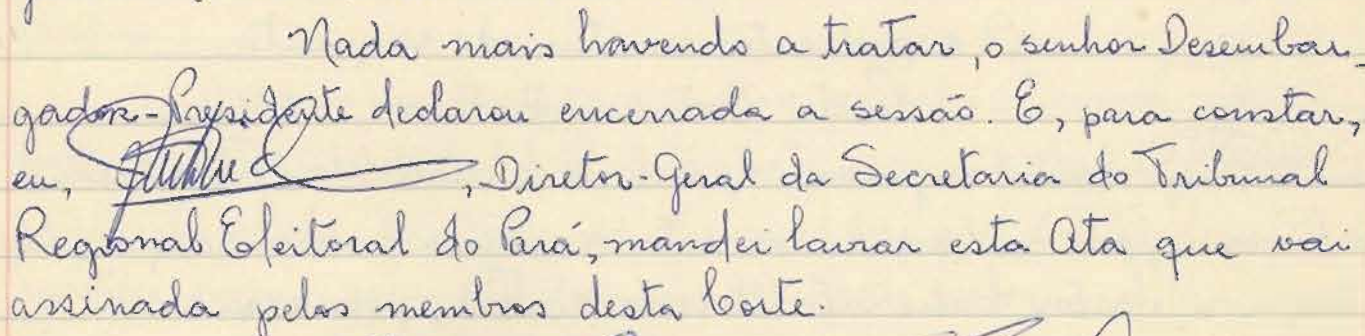 Nada mais havendo a tratar, o senhor Desembar-
gador-Presidente declarou encerrada a sessão. E, para constar,
eu, , Diretor-Geral da Secretaria do Tribunal
Regional Eleitoral do Pará, mandei lavrar esta Ata que vai
assinada pelos membros desta Corte.